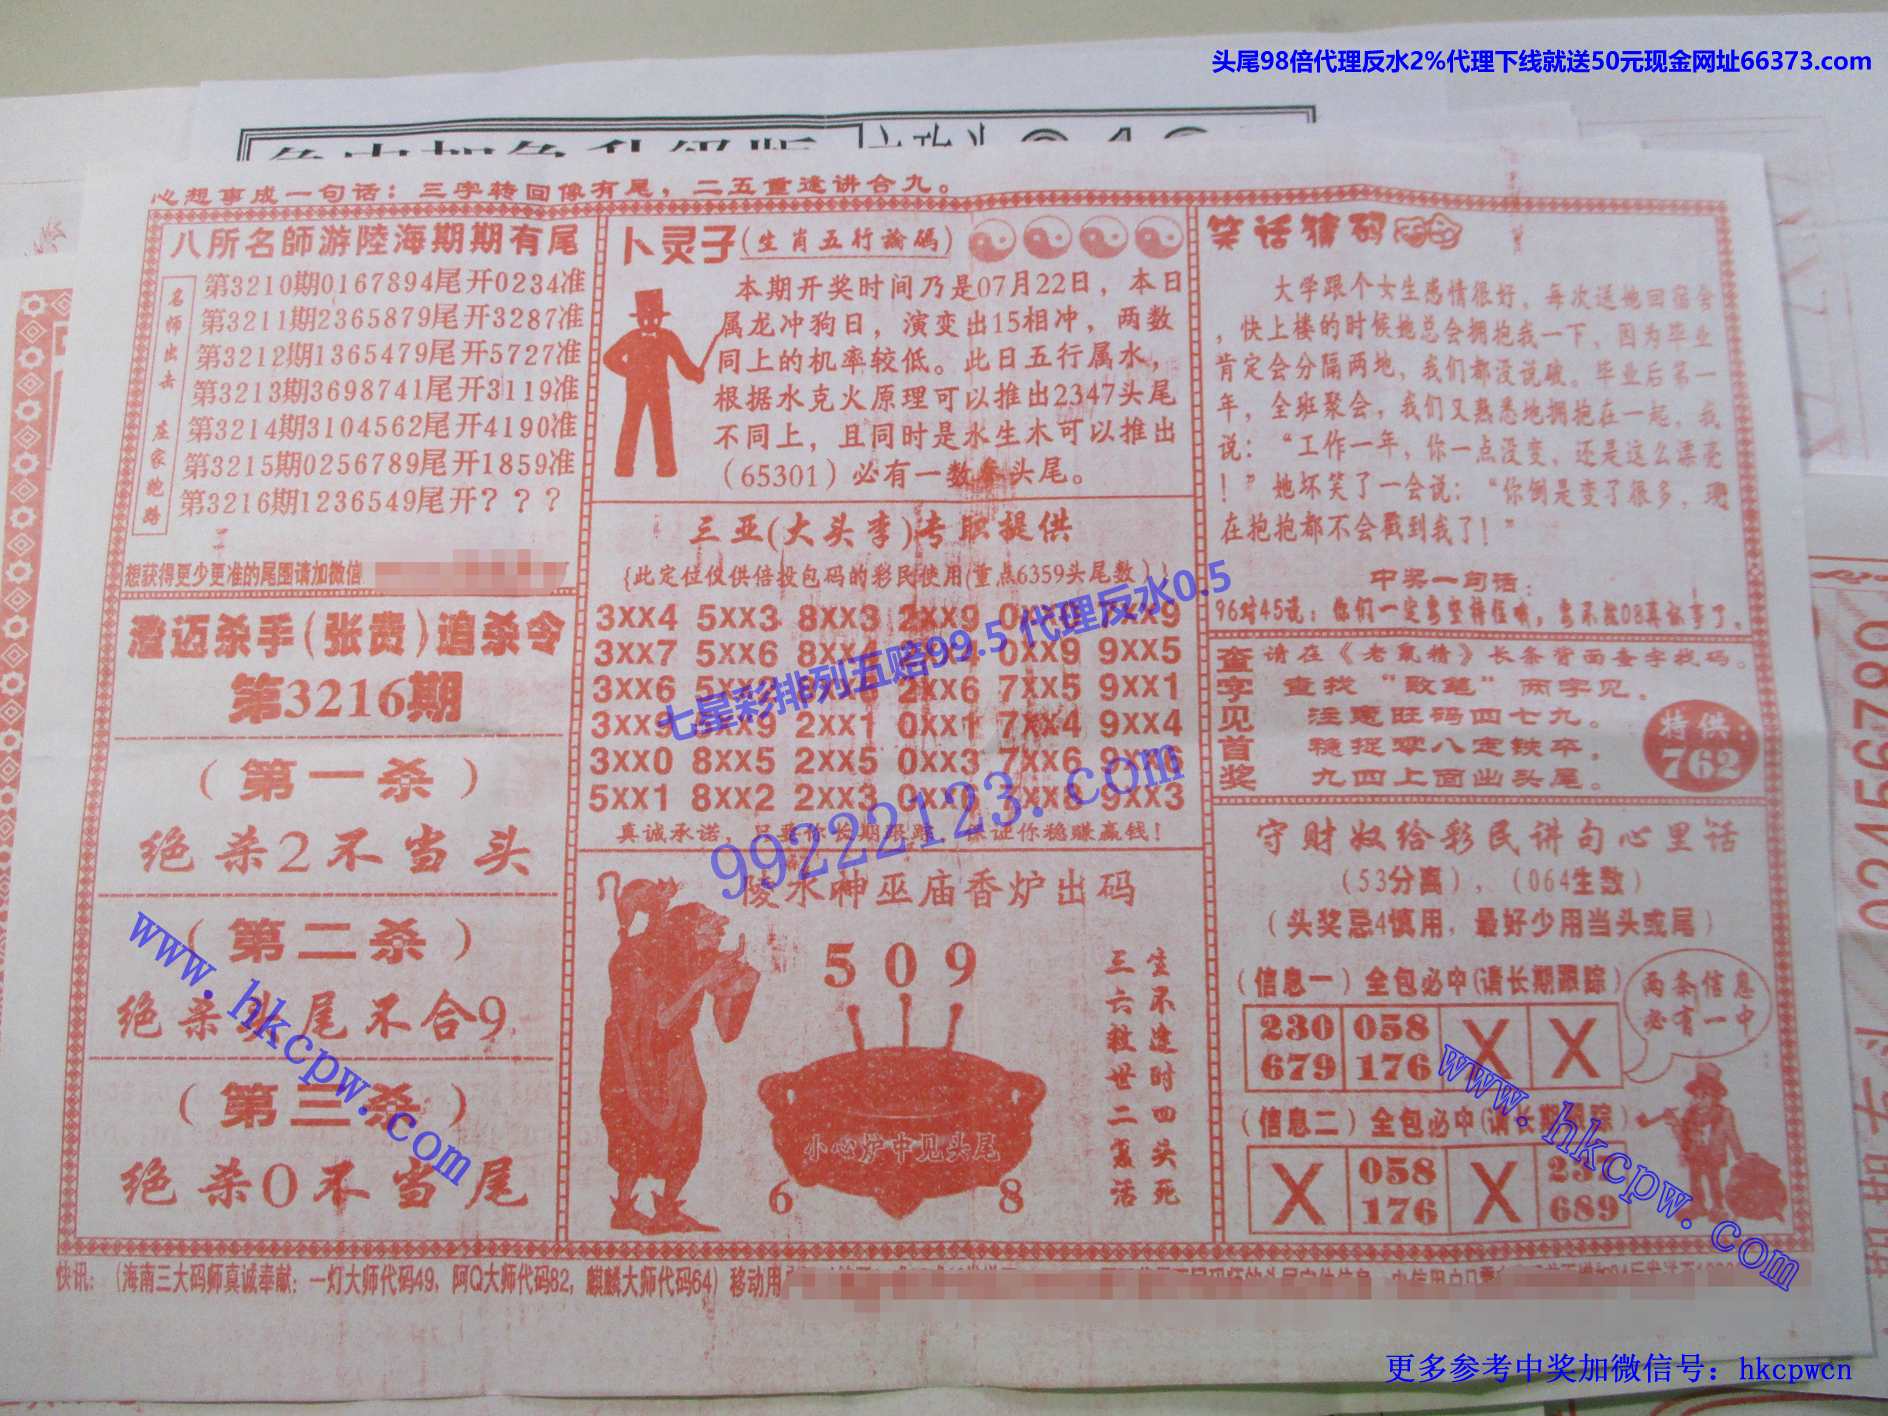 头尾98倍代理反水2%代理下线就送50元现金网址66373.com
心想事成一句话：三字转回像有尾，二五重逢讲合九。
八所名師游陸海期期有尾
名师出击 庄家跑路
第3210期0167894尾开0234准
第3211期2365879尾开3287准
第3212期1365479尾开5727准
第3213期3698741尾开3119准
第3214期3104562尾开4190准
第3215期0256789尾开1859准
第3216期1236549尾开？？？
想获得更少更准的尾围请加微信
澄迈杀手(张贵)追杀令
第3216期
(第一杀)
绝杀2不当头
(第二杀)
绝杀头尾不合9
(第三杀)
绝杀0不当尾
卜灵子(生肖五行論碼)
本期开奖时间乃是07月22日，本日
属龙冲狗日，演变出15相冲，两数
同上的机率较低。此日五行属水，
根据水克火原理可以推出2347头尾
不同上，且同时是水生木可以推出
(65301)必有一数拿头尾。
三亚(大头李)专职提供
{此定位仅供倍投包码的彩民使用(重点6359头尾数)}
3XX4 5XX3 8XX3 2XX9 0XX8 7XX9
3XX7 5XX6 8XX4 0XX9 9XX5
3XX6 2XX6 7XX5 9XX1
3XX9 2XX1 0XX1 7XX4 9XX4
3XX0 8XX5 2XX5 0XX3 7XX6 9XX6
5XX1 8XX2 2XX3 9XX3
真诚承诺，只要你长期跟踪，保证你稳赚赢钱！
陵水神巫庙香炉出码
509
生不逢时四头死
三六救世二复活
小心炉中见头尾
6 8
笑话猜码
大学跟个女生感情很好，每次送她回宿舍
，快上楼的时候她总会拥抱我一下，因为毕业
肯定会分隔两地，我们都没说破。毕业后第一
年，全班聚会，我们又熟悉地拥抱在一起，我
说：“工作一年，你一点没变，还是这么漂亮
！”她坏笑了一会说：“你倒是变了很多，现
在抱抱都不会戳到我了！”
中奖一句话：
查字见首奖
请在《老鼠精》长条背面查字找码。
查找“致笔”两字见。
注意旺码四七九。
稳捉零八定铁卒，
九四上面出头尾。
特供：
762
守财奴给彩民讲句心里话
(53分离)，(064生数)
(头奖忌4慎用，最好少用当头或尾)
(信息一)全包必中(请长期跟踪)
两条信息
必有一中
230 058 X X
679 176
(信息二)全包必中(请长期跟踪)
X 058 X 237
176 689
快讯：(海南三大码师真诚奉献：一灯大师代码49，阿Q大师代码82，麒麟大师代码64)移动用
七星彩排列五赔99.5 代理反水0.5
99222123.com
www.hkcpw.com
www.hkcpw.com
更多参考中奖加微信号：hkcpwcn